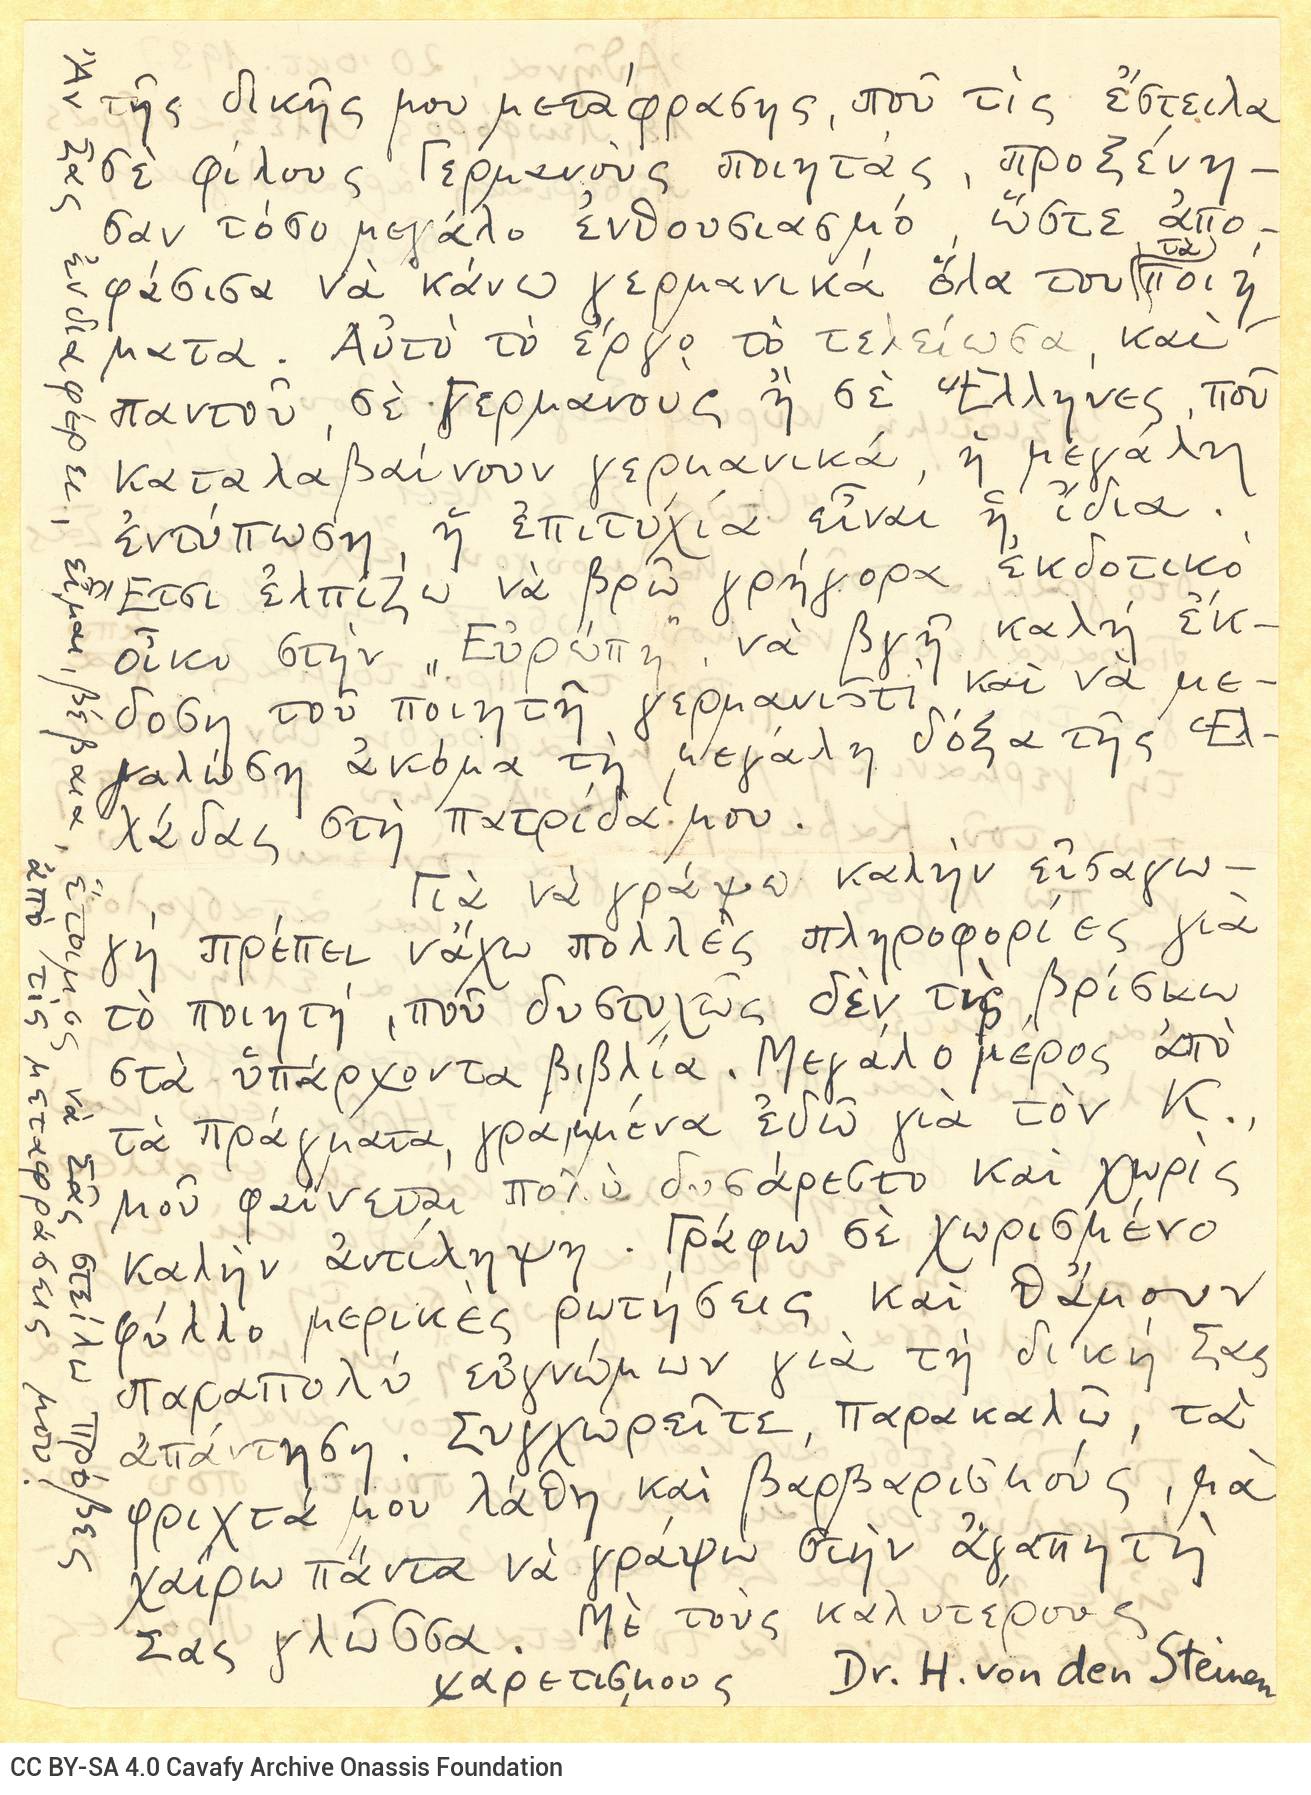 τῆς δικῆς μου μετάφρασης, ποῦ τὶς ἔστειλα
σὲ φίλους Γερμανοὺς ποιητάς, προξένη-
σαν τόσο μεγάλο ἐνθουσιασμό, ὥστε ἀπο-
φάσισα νὰ κάνω γερμανικά ὅλα του τὰ ποιή
ματα. Αὐτὸ τὸ ἔργο τὸ τελείωσα, καὶ
παντοῦ, σὲ Γερμανοὺς ἢ σὲ Ἕλληνες, ποῦ
καταλαβαίνουν γερμανικά, ἡ μεγάλη
ἐντύπωση, ἡ ἐπιτυχία εἶναι ἡ ἴδια.
Ἔτσι ἐλπίζω νὰ βρῶ γρήγορα ἐκδοτικὸ
οἶκο στὴν „Εὐρώπη", νὰ βγῆ καλή ἔκ-
δοση τοῦ ποιητῆ γερμανιστὶ καὶ νὰ με-
γαλώση ἀκόμα τὴ μεγάλη δόξα τῆς Ἑλ-
λάδας στὴ πατρίδα μου.
Γιὰ νὰ γράψω καλὴν εἰσαγω-
γή πρέπει νἄχω πολλὲς πληροφορίες γιὰ
τὸ ποιητή, ποῦ δυστυχῶς δὲν τὶς βρίσκω
στὰ ὑπάρχοντα βιβλία. Μεγάλο μέρος ἀπὸ
τὰ πράγματα, γραμμένα ἐδῶ γιὰ τὸν Κ.,
μοῦ φαίνεται πολὺ δυσάρεστο καὶ χωρὶς
καλὴν ἀντίληψη. Γράφω σὲ χωρισμένο
φύλλο μερικὲς ρωτήσεις καὶ θἄμουν
παραπολύ εὐγνώμων γιὰ τὴ δική Σας
ἀπάντηση. Συγχωρεῖτε, παρακαλῶ, τὰ
φριχτά μου λάθη καὶ βαρβαρισμούς, μὰ
χαίρω πάντα νὰ γράφω στὴν ἀγαπητὴ
Σας γλῶσσα. Μὲ τοὺς καλυτέρους
χαρετισμους Dr. H. von den Steinen
Ἂν Σας ἐνδιαφέρει, εἶμαι, βέβαια, ἕτοιμος νὰ Σᾶς στείλω πρόβες
ἀπὸ τὶς μεταφράσεις μου.
CC BY-SA 4.0 Cavafy Archive Onassis Foundation